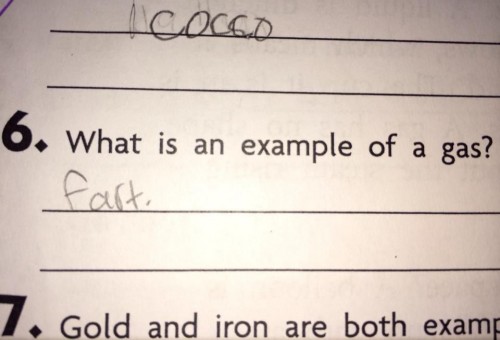 cocco
6. What is an example of a gas?
Fart.
7. Gold and iron are both examp